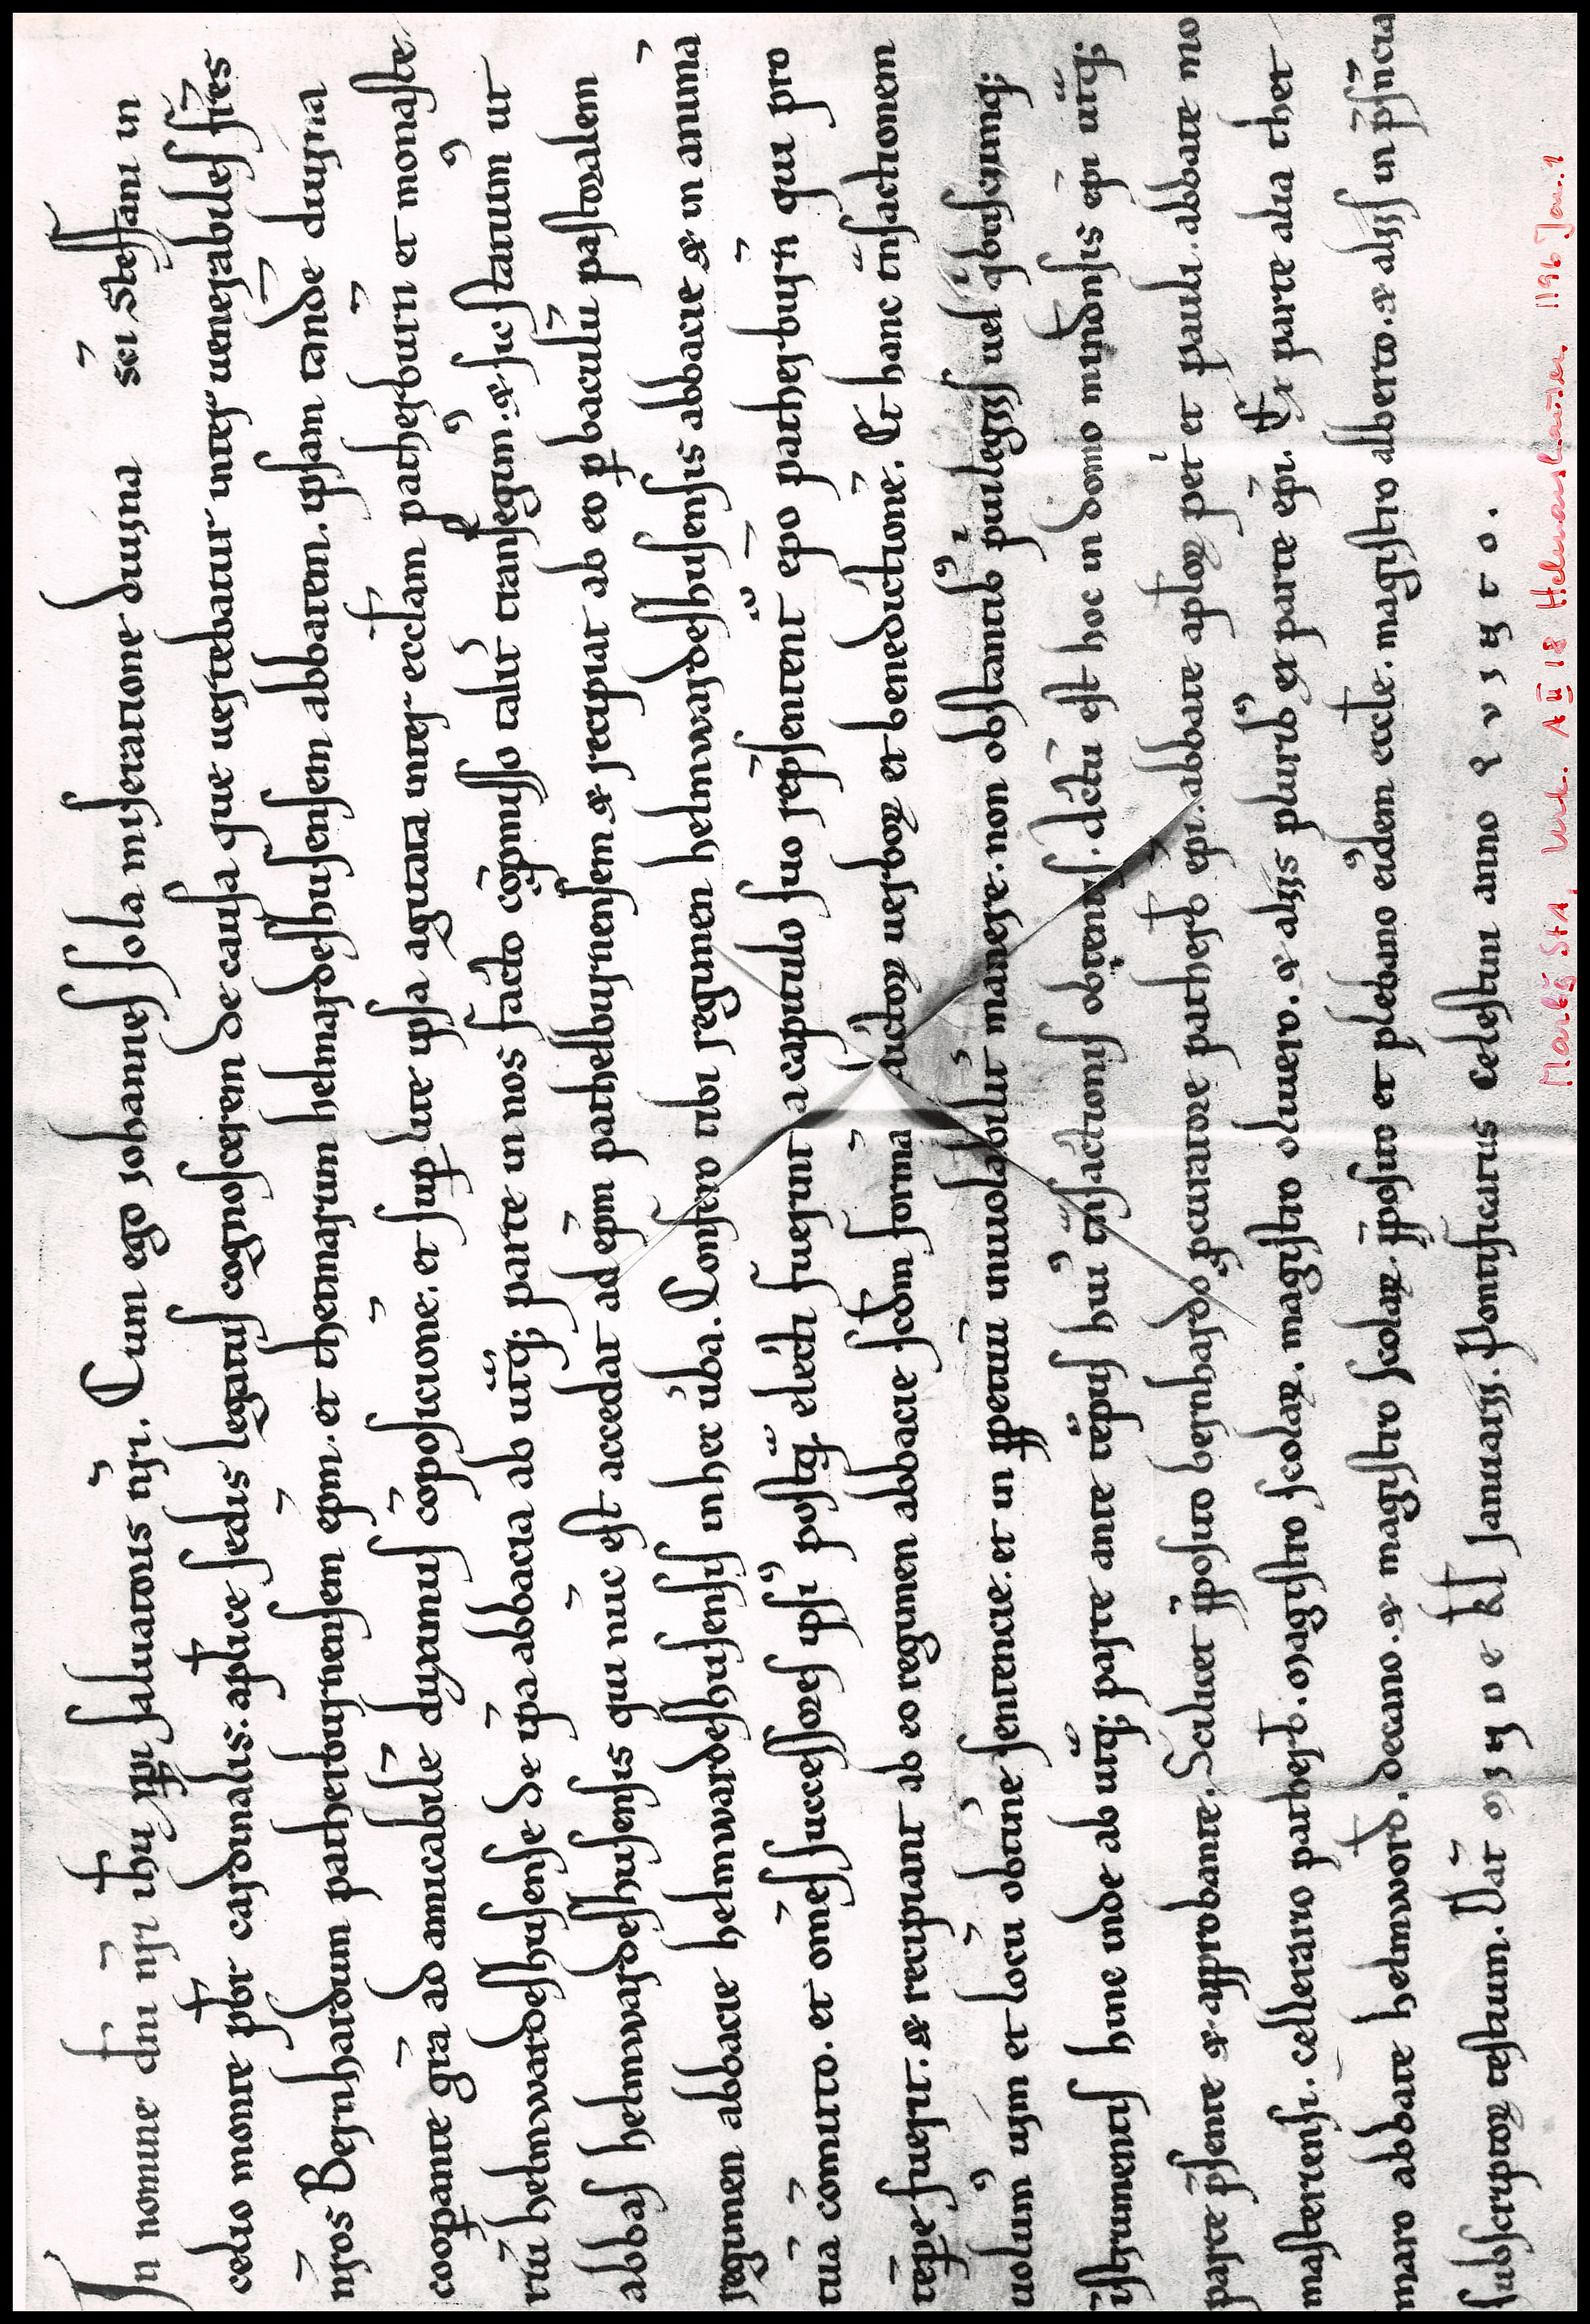 In nomine dn̄i nr̄i ih̄u xp̄i saluatoris nr̄i. Cum ego iohannes sola miseratione diuina sc̄i Steffani in
celio monte pb̄r cardinalis. aplīce sedis legatus cognoscerem de causa que uertebatur inter uenerabiles fr̄es
nr̄os Bernhardum patherburnensem ep̄m. et thetmarum helmardeshusensem abbatem. ipsam tandē diuina
coopante gr̄a ad amicabilē duximus cōposicionē. et sup lite ipsa agitata inter eccl̄am patherburn̄ et monaste
riū helmwardeshusense de ip̄a abbacia ab utq; parte in nos facto cōpmisso talit̄ transegim⁹. & sic statuim⁹ ut
abbas helmwardeshusensis qui nūc est accedat ad ep̄m patherburnensem & recipiat ab eo p baculū pastoralem
regimen abbacie helmwardeshusensis in hec ūba. Confero tibi regimen helmwardeshusensis abbacie & in animā
tuā cōmitto. et om̄es successores ipsi⁹ postq̄ electi fuerint a capitulo suo rep̄sentent̄ epō patherburn̄ qui pro
tēpe fuerit. & recipiant ab eo regimen abbacie sc̄dm formā dictoꝝ uerboꝝ et benedictionē. Et hanc tn̄sactionem
uolum⁹ uim et locū obtinē sentencie. et in ppetuū inuiolabilit̄ manere. non obstantib⁹ p̱uilegiis uel q̱buscumq;
īstrumentis hinc inde ab utq; parte ante tēpus hui⁹ tn̄sactionis obtentis. dictū est hoc in domo mindōnsis ep̄i utq;
parte p̄sente & approbante. Scilicet p̄posito bernhardo pcuratore patherb̄ ep̄i. abbate apl̄oꝝ pet̄ et pauli. abbate mo
nasteriensi. cellerario patherb̄. magistro scolaꝝ. magistro oliuero. & aliis plurib⁹ ex parte ep̄i. Ex parte alia thet
maro abbate helmword̄. decano. & magistro scolaꝝ p̄posito et plebano eiūdem eccl̄e. magistro alberto. & aliis in p̄sncia
subscriptoꝝ testium. Dat̄ Minde kl̄ Januarii. Pontificatus Celestini anno Quinto.
Marbg StA, Urk. A II 18 Helmarshausen 1196 Jan. 1